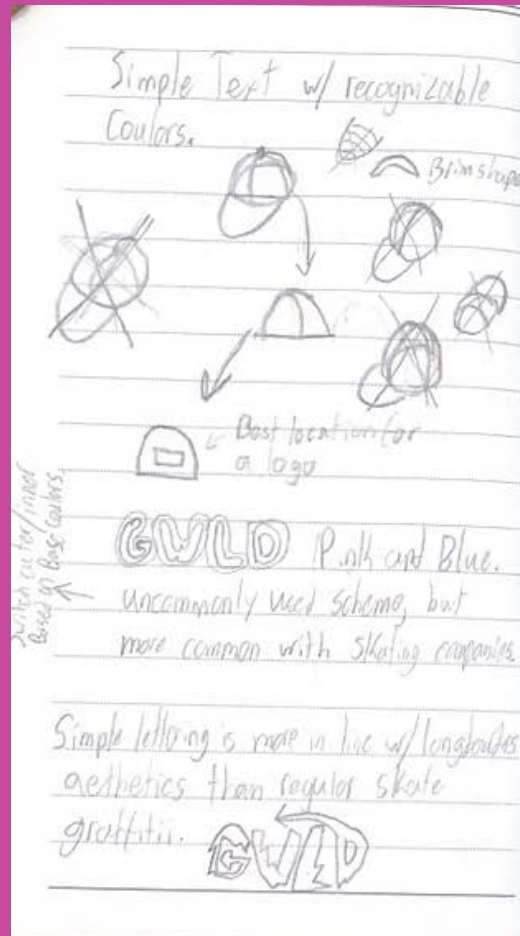 Simple Text w/ recognizable
Coulors.
Brim shape
Best location for
a logo
Switch outer/inner
Based on Base Coulors.
GWLD Pink and Blue.
uncommonly used scheme, but
more common with skating companies
Simple lettering is more in line w/
aesthetics than regular skate
graffitii.
GWLD